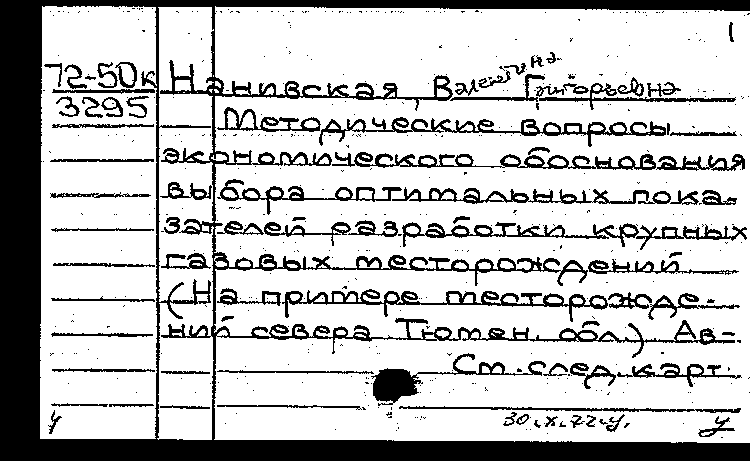 1
72-50к
3295
Нанивская, Валентина Григорьевна
Методические вопросы
экономического обоснования
выбора оптимальных пока-
зателей разработки крупных
газовых месторождений.
(На примере месторожде-
ний севера Тюмен. обл.) Ав-
См. след. карт.
30.X.72г.